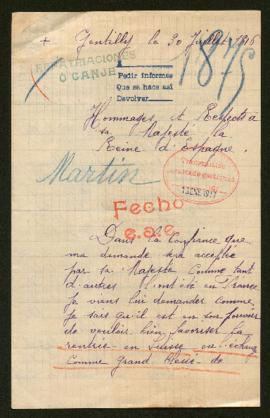 + Gentilly le 30 Juillet 1916
REPATRIACIONES
O CANJE
Pedir informes
Que se hace así
Devolver
1875
Hommages et Respects
à sa Majesté la
Reine d'Espagne.
Martin
13 ENE 1917
Fecho
e.a.e.
Dans la confiance que
ma demande sera acceptée
par sa Majesté comme tant
d'autres l'ont été en France
Je viens lui demander comme
Je sais qu'il est en son pouvoir
de vouloir bien favoriser la
rentrée en Suisse ou échange
comme Grand Blessé de